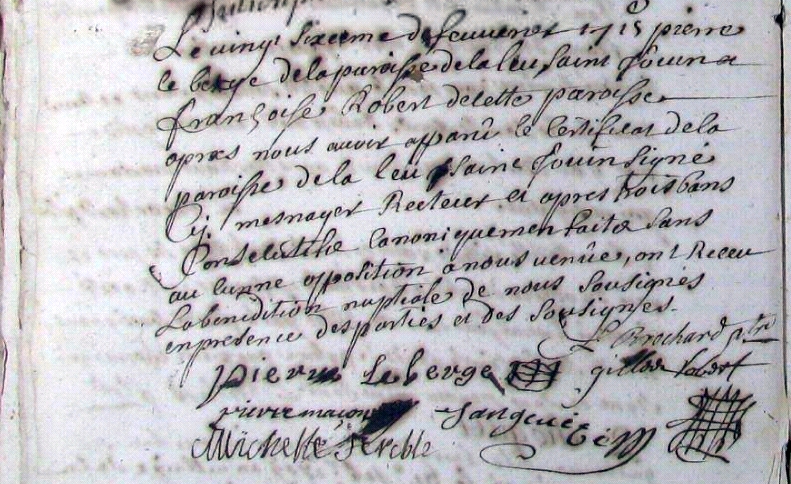 Le vingt sixieme de feuvrier 1715 pierre
le berge de la paroisse de la leu saint Jouin a
françoise Robert de cette paroisse
apres nous avoir apparû le Certificat de la
paroisse de la leu saint Jouin Signé
mesnager Recteur et apres trois bans
Consecutifs Canoniquement faits Sans
aucunne opposition a nous venûe, ont Receu
La benediction nuptiale de nous Sousignés
en presence des parties et des Sousignés.
Brochard ptre
pierre Leberge gilles Robert
pierre
Michelle